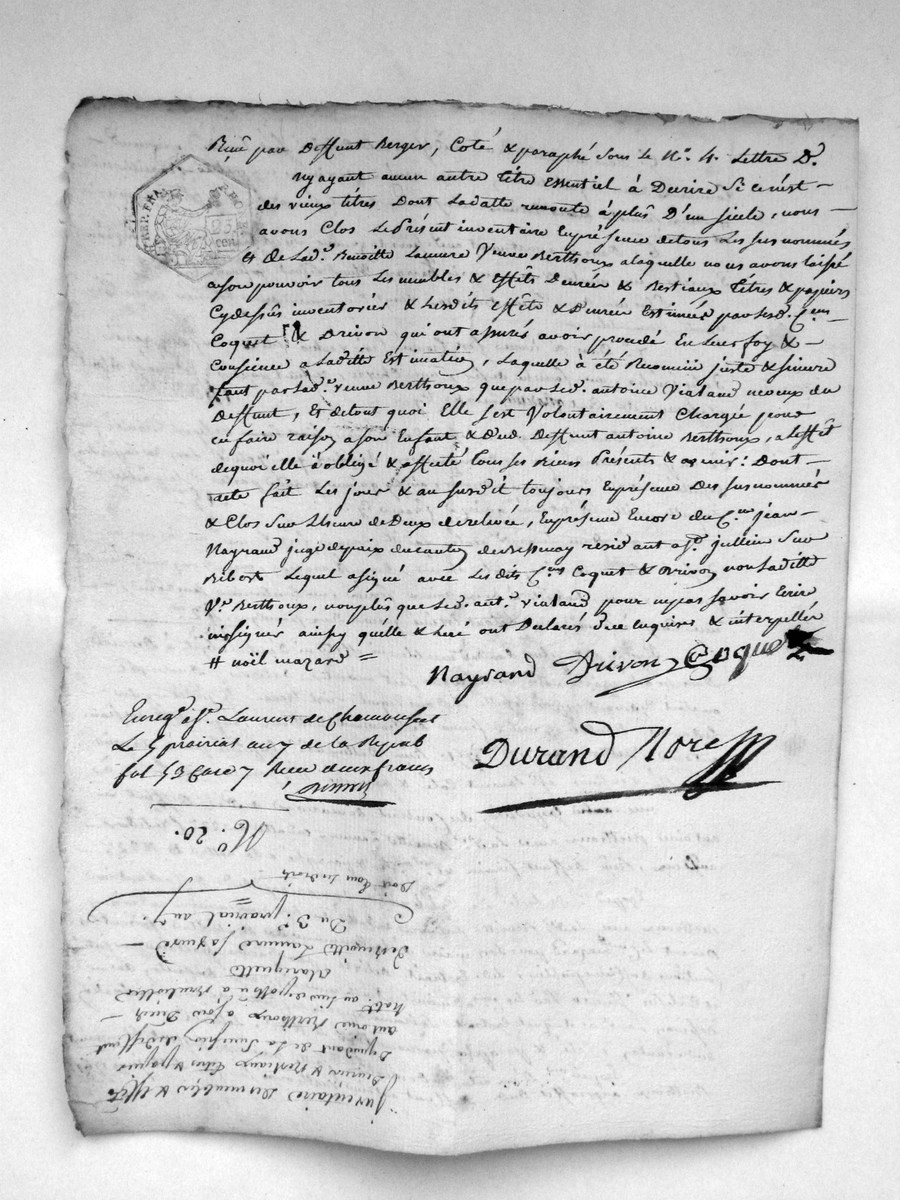 Reçû par Deffunt Berger, Coté & paraphé sous le N.º 4. Lettre D.
ny ayant aucun autre titre essentiel à Decrire si ce n'est
des vieux titres Dont Ladatte remonte à plus D'un siecle, nous
avons Clos Leprésent inventaire Enprésence detous Les susnommés
et de Lad.e Benoitte Lamure Veuve Berthoux alaquelle nous avons laissé
asonpouvoir tous Les meubles & effêts Denrées & Bestiaux titres & papiers
Cydessûs inventoriés & Lesdits effêts & Denrées Estimés par Lesd. C.ens
Coquet & Drivon qui ont assurés avoir procédé En Leur foy &
Consience a Laditte Estimation, Laquelle à été Reconnüe juste & sincere
tant par Lad.e veuve Berthoux que par Led. antoine Vialand neveux du
Deffunt, Et detout quoi Elle s'est Volontairement Chargée pour
en faire raison à son Enfant & Dud. Deffunt antoine Berthoux, a Leffêt
dequoi elle à obligé & affecté tous ses Biens Présents & avenir: Dont
acte fait Les jour & an susdit toujours Enprésence Des susnommés
& Clos Sur Lheure de Deux de relevée, Enprésence Encore du C.en jean
Nayrand juge depaix ducanton de Bessenay residant a S.t jullien Sur
Bibost Lequel a signé avec Les dits C.ens Coquet & Drivon non Laditte
V.e Berthoux, nonplûs que Led. ant.e vialand pour nepas savoir Ecrire
nisigner ainsy qu'elle & ont Declarés de ce Enquises & interpellés
# noël mazard =
Nayrand Drivon Coquet
Enreg.é à S.t Laurent de Chamousset
Le 5 prairial an 7 de la Repub
fol 53 Case 7 Recu deux francs
Durand Nore
N.º 20.
Du 3.e prairial an 7.
De Benoitte Lamure sa veuve
alarequette
antoine Berthoux a son Décès
Dépendant de la Succession de Deffunt
Denrées & Bestiaux titres & papiers
Inventaire Des meubles & effêts